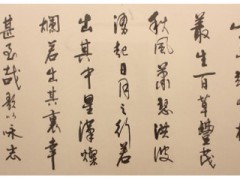 叢生百草豐茂
秋風蕭瑟洪波
湧起日月之行若
出其中星漢燦
爛若出其裏幸
甚至哉歌以詠志